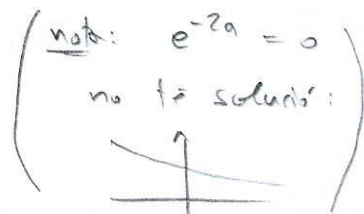 nota: e^{-2a} = 0
no té solució: